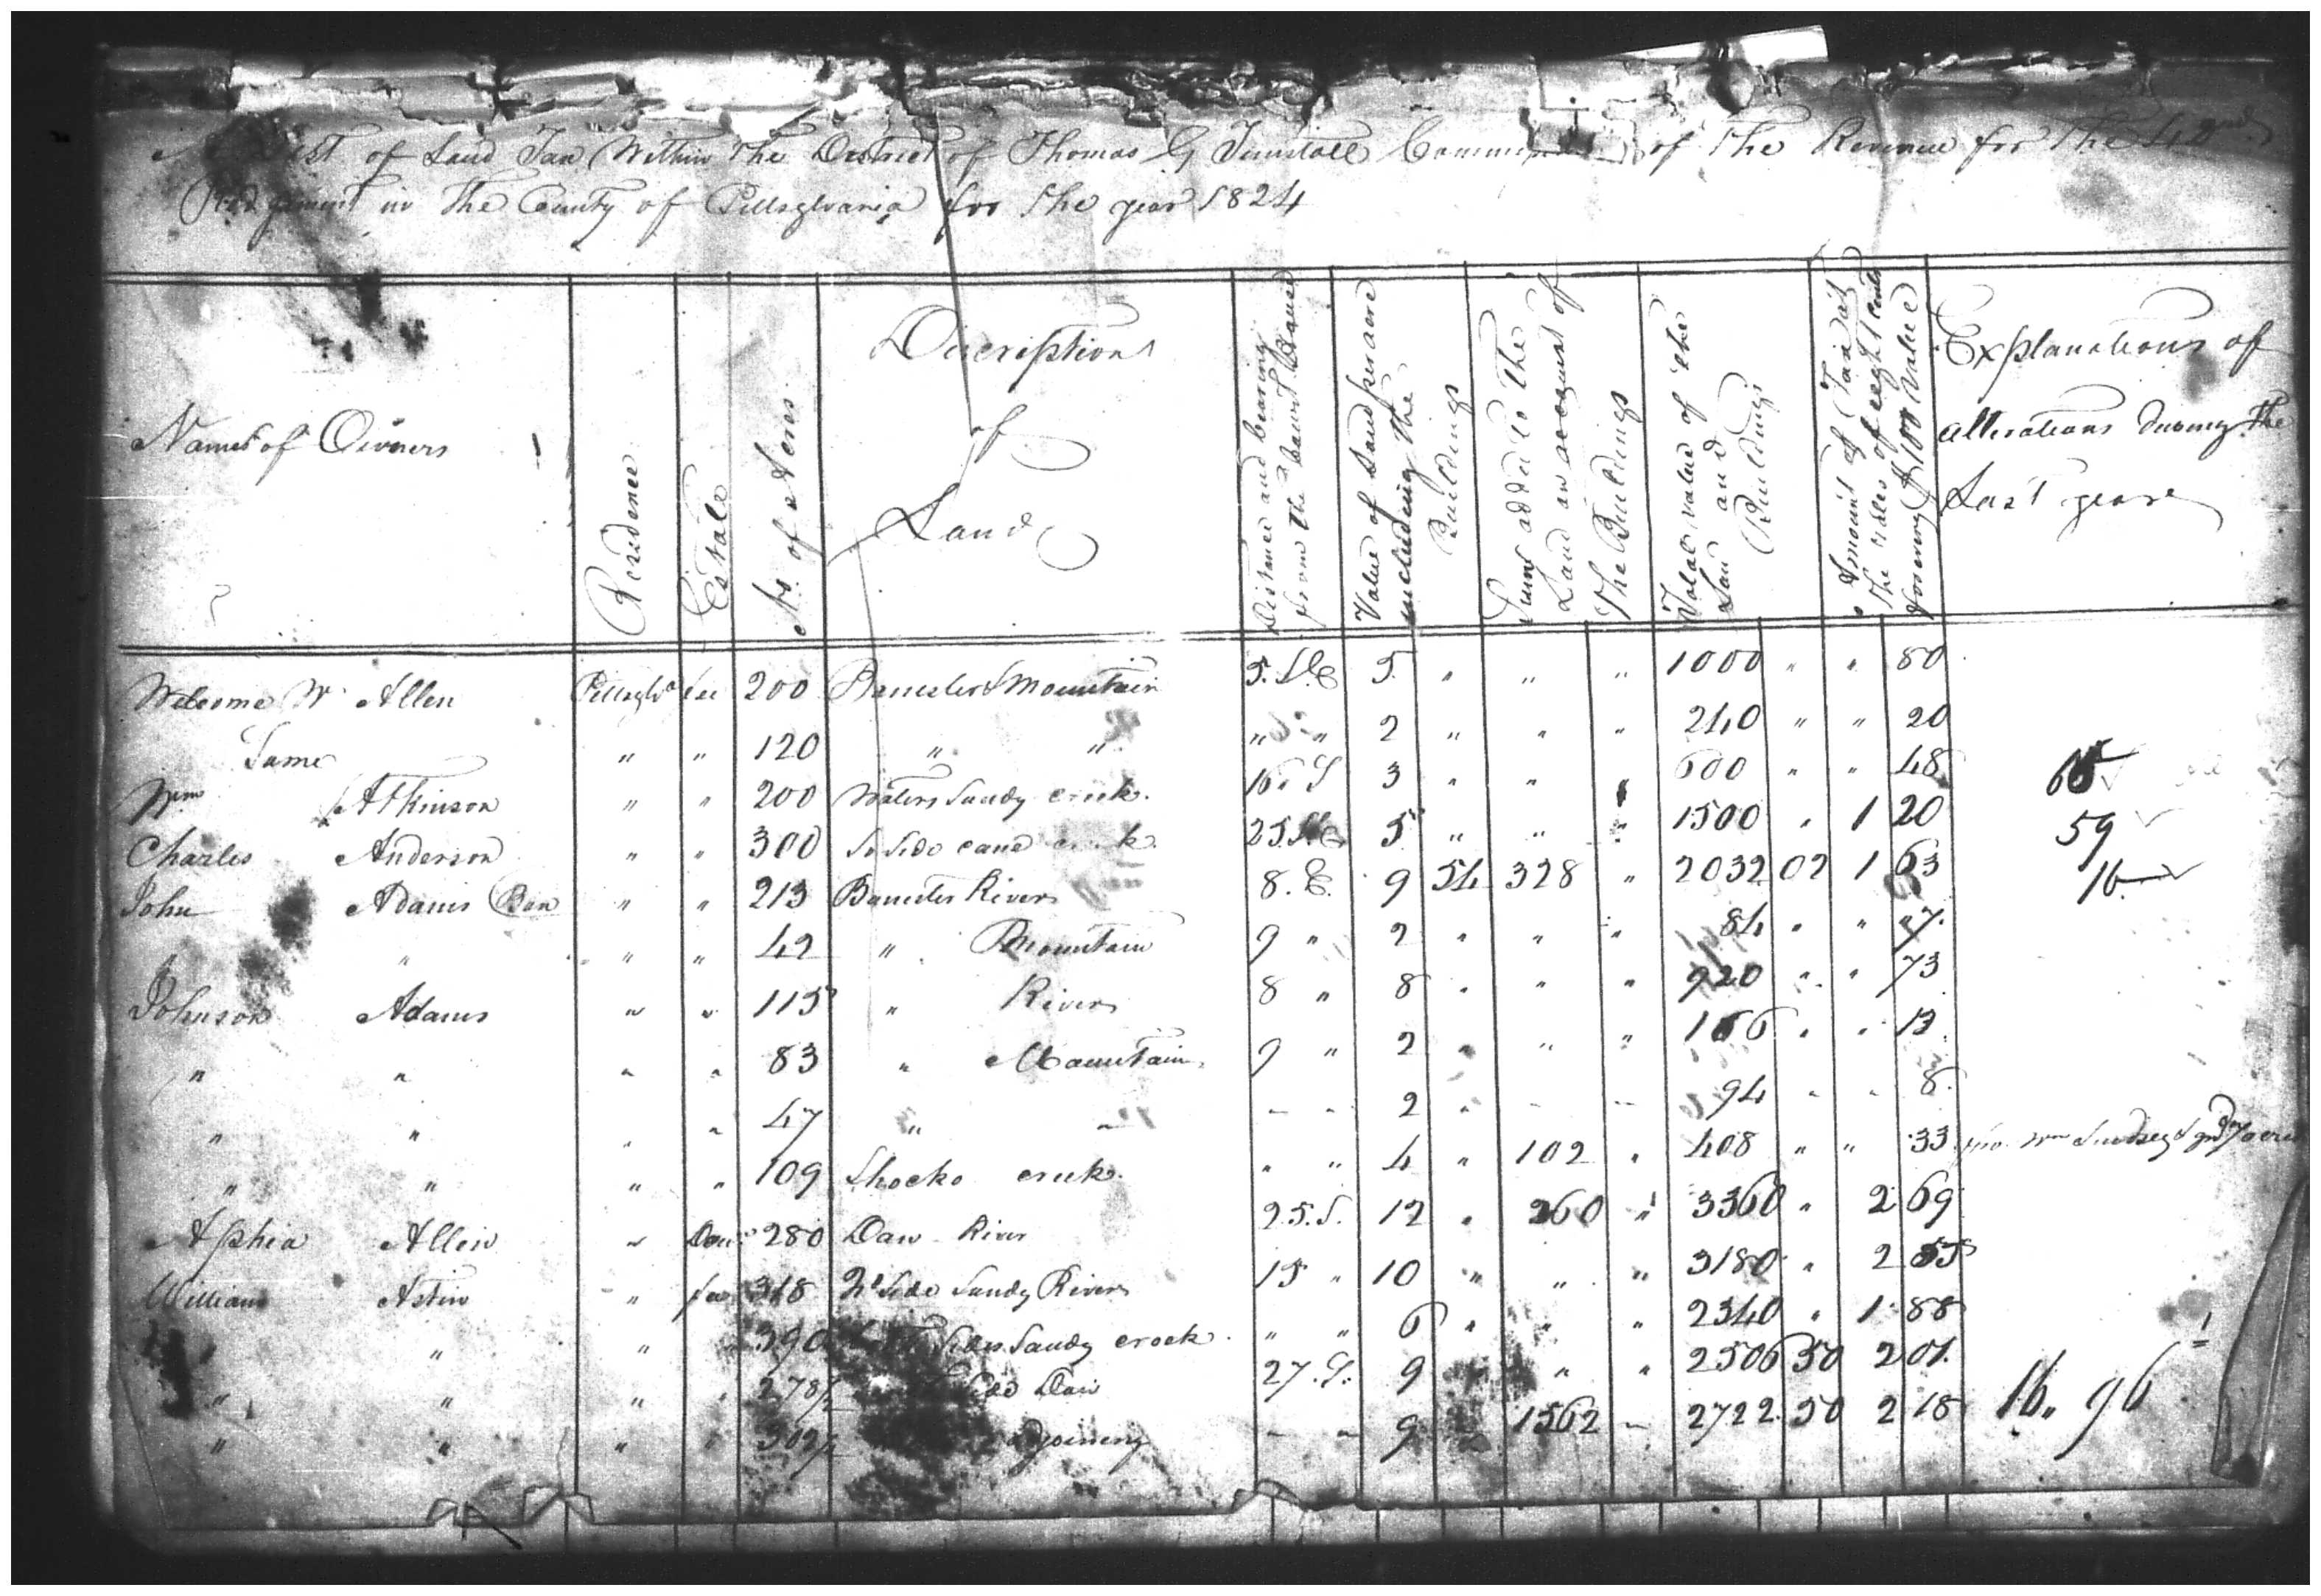 List of Land Tax Within the District of Thomas G Tunstall of the Revenue for the 42nd
Regiment in the County of Pittsylvania for the year 1824
Names of Owners
Residence
Estate
No. of Acres
Discription of Land
Distance and bearing from the Court House
Value of Land per acre including the Buildings
Sums added to the Land on account of the Buildings
Total value of the Land and Buildings
Amount of Tax at the rates of eight cents for every $100 Value
Explanations of alterations during the Last year
Welcome W. Allen Pittsylva fee 200 Banester Mountain 5. 5 " " " 1000 " " 80
Same " " 120 " " " " 2 " " " 240 " " 20
Wm Atkinson " " 200 Waters Sandy creek. 16 S 3 " " " 600 " " 48
Charles Anderson " " 300 So Side cane 25 5 " " " 1500 " 1 20 59
John Adams Ban " " 213 Banester River 8. E. 9 54 328 " 2032 02 1 63 16
" " " 42 " Mountain 9 " 2 " " " 84 " " " 7.
Johnson Adams " " 115 " River 8 " 8 " " " 920 " " 73
" " " " 83 " Mountain. 9 " 2 " " " 166 " " 13.
" " " " 47 " " - - 2 " - - 94 " " 8.
" " " " 109 Shocko creek. " " 4 " 102 " 408 " " 33 Wm
Aphia Allen " Dow 280 Dan River 25. S. 12 " 260 " 3360 " 2 69
William Astin " fee 318 Side Sandy River 15 " 10 " " " 3180 " 2 55
" " " 390 Sides Sandy creek. " " 6 " " " 2340 " 1 88
" " " " 278½ Side Dan 27. S. 9 " " 2506 50 2 01.
" " " " 302½ adjoining - - 9 1562 - 2722 50 2 18 16.. 96